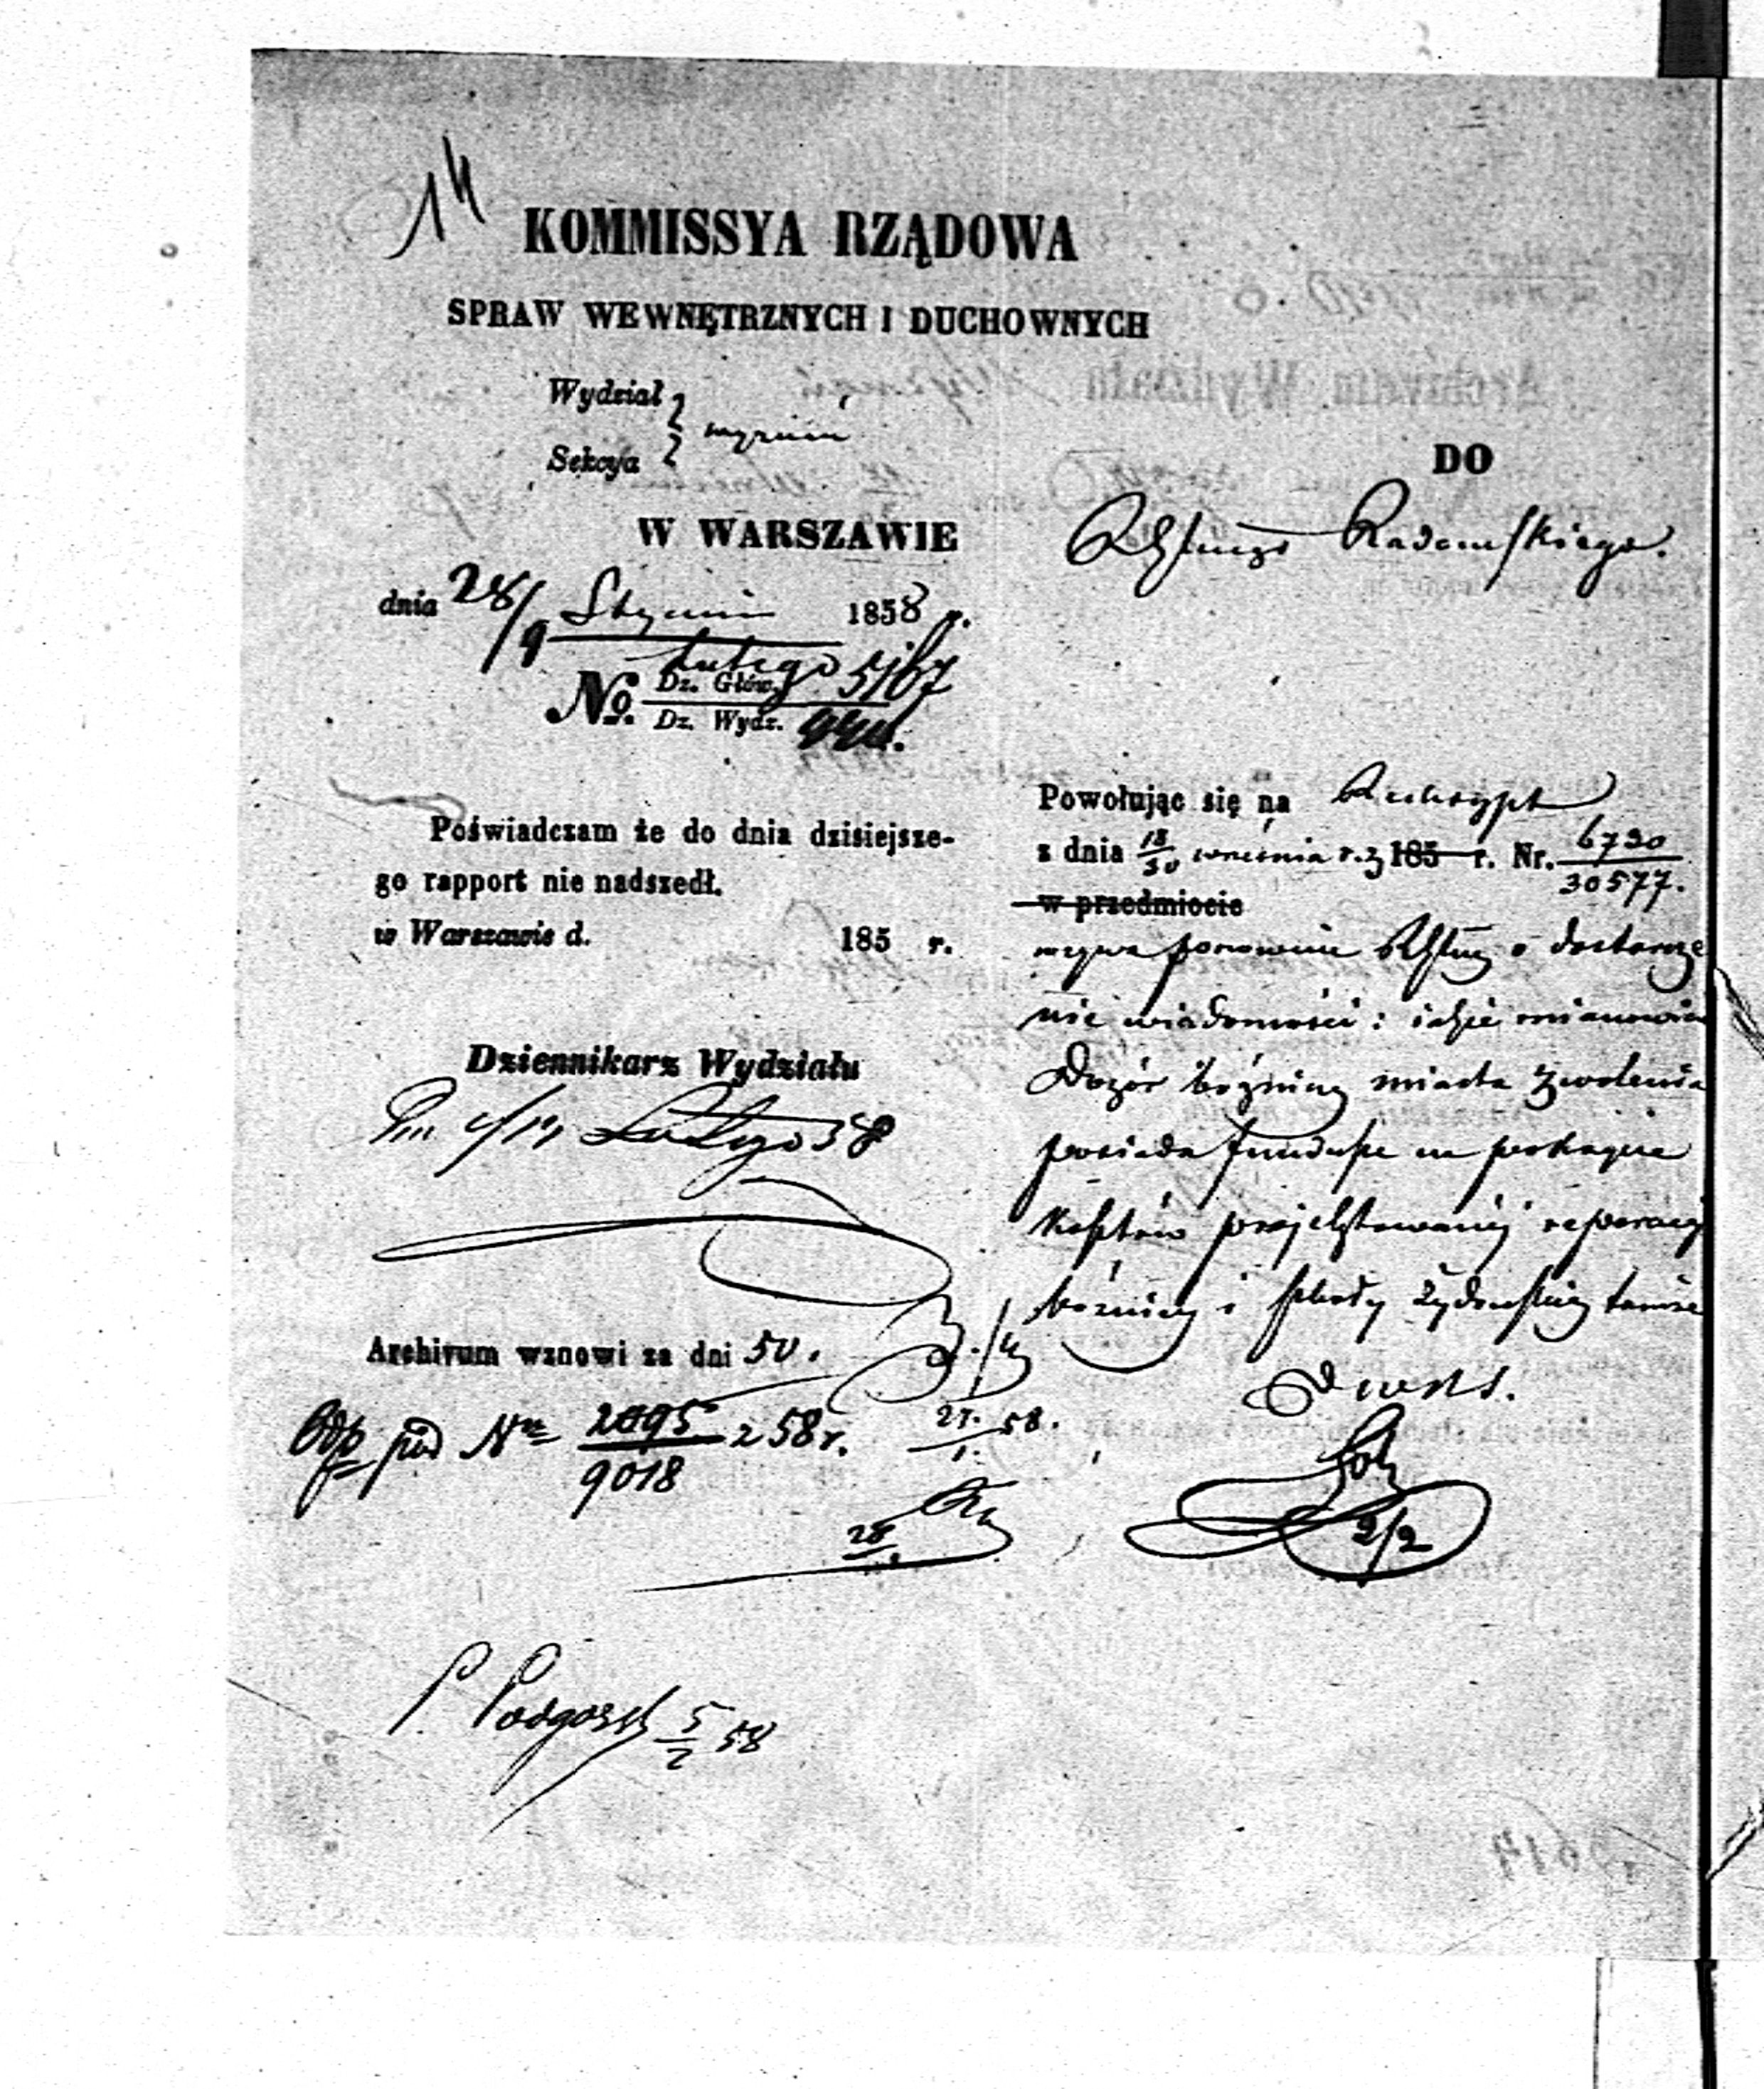 14
KOMMISSYA RZĄDOWA
SPRAW WEWNĘTRZNYCH I DUCHOWNYCH
Wydział
Sekcya
wyznań
W WARSZAWIE
dnia 28/9 Stycznia 1858 r.
Lutego
No. Dz. Główn. 5167
Dz. Wydz.
Poświadczam że do dnia dzisiejsze-
go rapport nie nadszedł.
w Warszawie d. 185 r.
Dziennikarz Wydziału
Lutego 58
Archivum wznowi za dni 50.
Odp pod Nr 2095 z 58 r.
9018
27. 58.
1.
28
P. Podgorsk 5/2 58
DO
Radomskiego.
Powołując się na Reskrypt
z dnia 18/30 września r. z 185 r. Nr. 6730
30577.
w przedmiocie
wzywa ponownie o dostarcze
nie wiadomości: iżie mianowicie
Dozór bóżniczy miasta Zwolenia
posiada fundusze na pokrycie
kosztów projektowanej reperacyi
bóżnicy i szkoły żydowskiej tamże
2/2